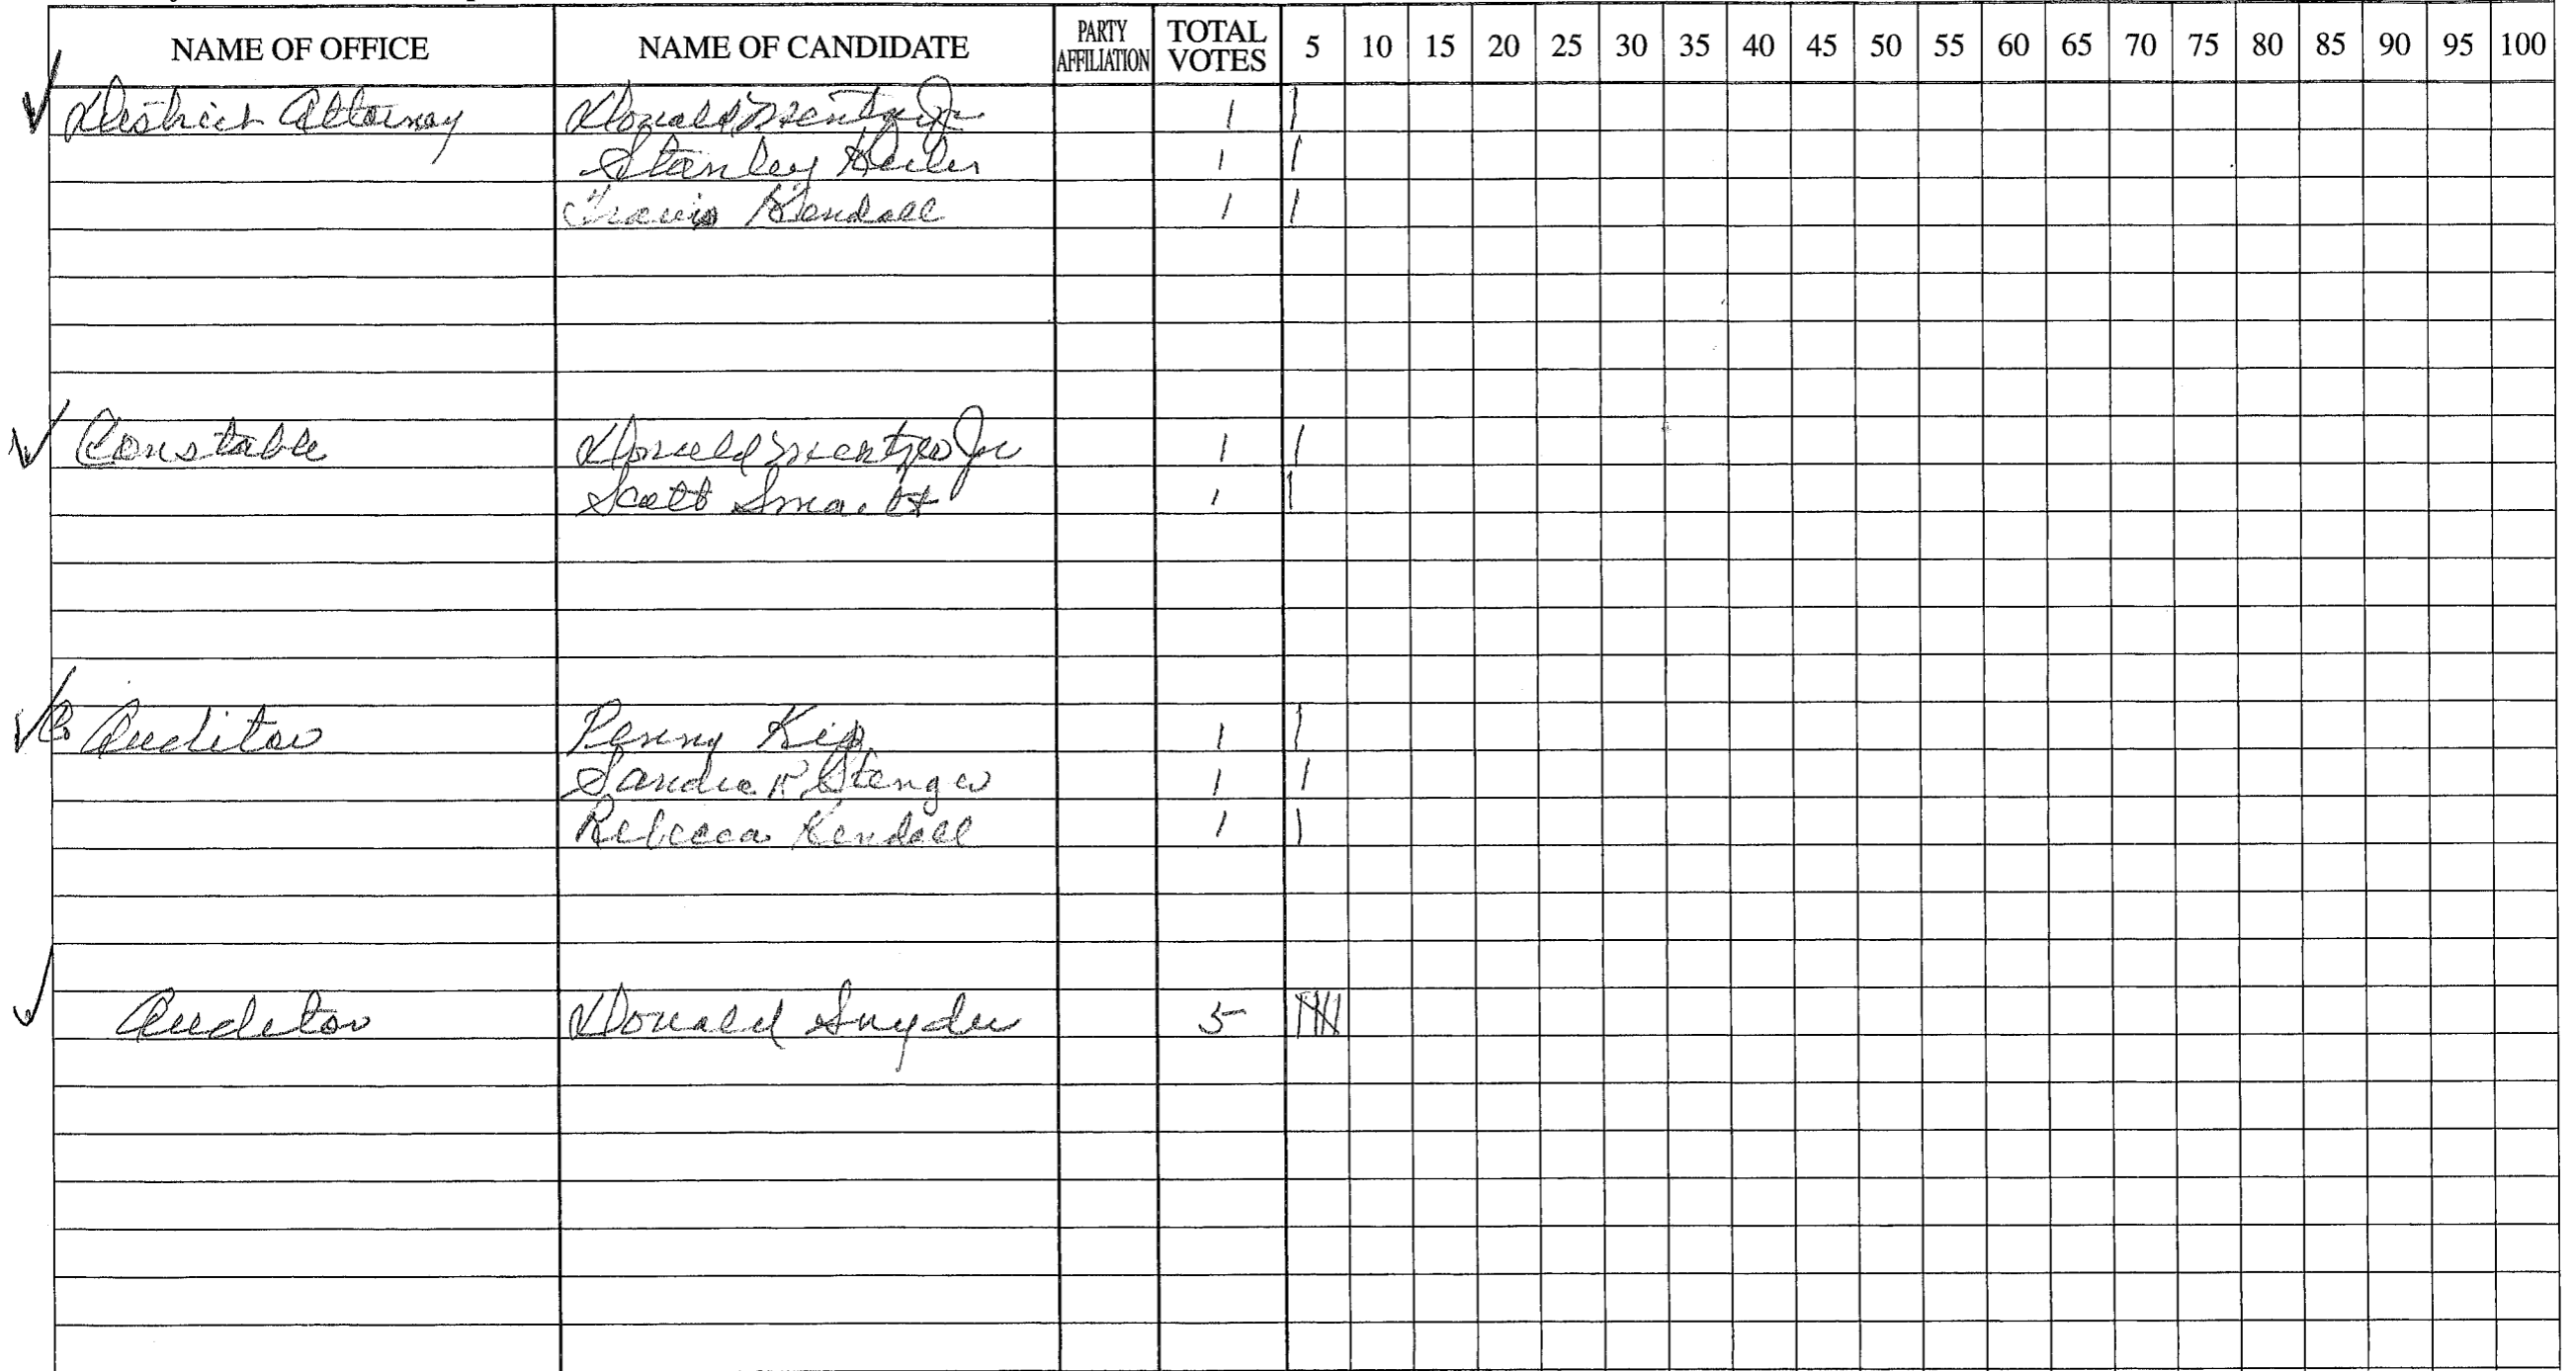 NAME OF OFFICE NAME OF CANDIDATE PARTY AFFILIATION TOTAL VOTES 5 10 15 20 25 30 35 40 45 50 55 60 65 70 75 80 85 90 95 100
District Attorney Donald Mentzer Jr 1
Stanley 1
Travis Kendall 1
Constable Donald Mentzer Jr 1
Scott 1
Co. Auditor Penny Kip 1
Sandra K Stenger 1
Rebecca Kendall 1
Auditor Donald Snyder 5